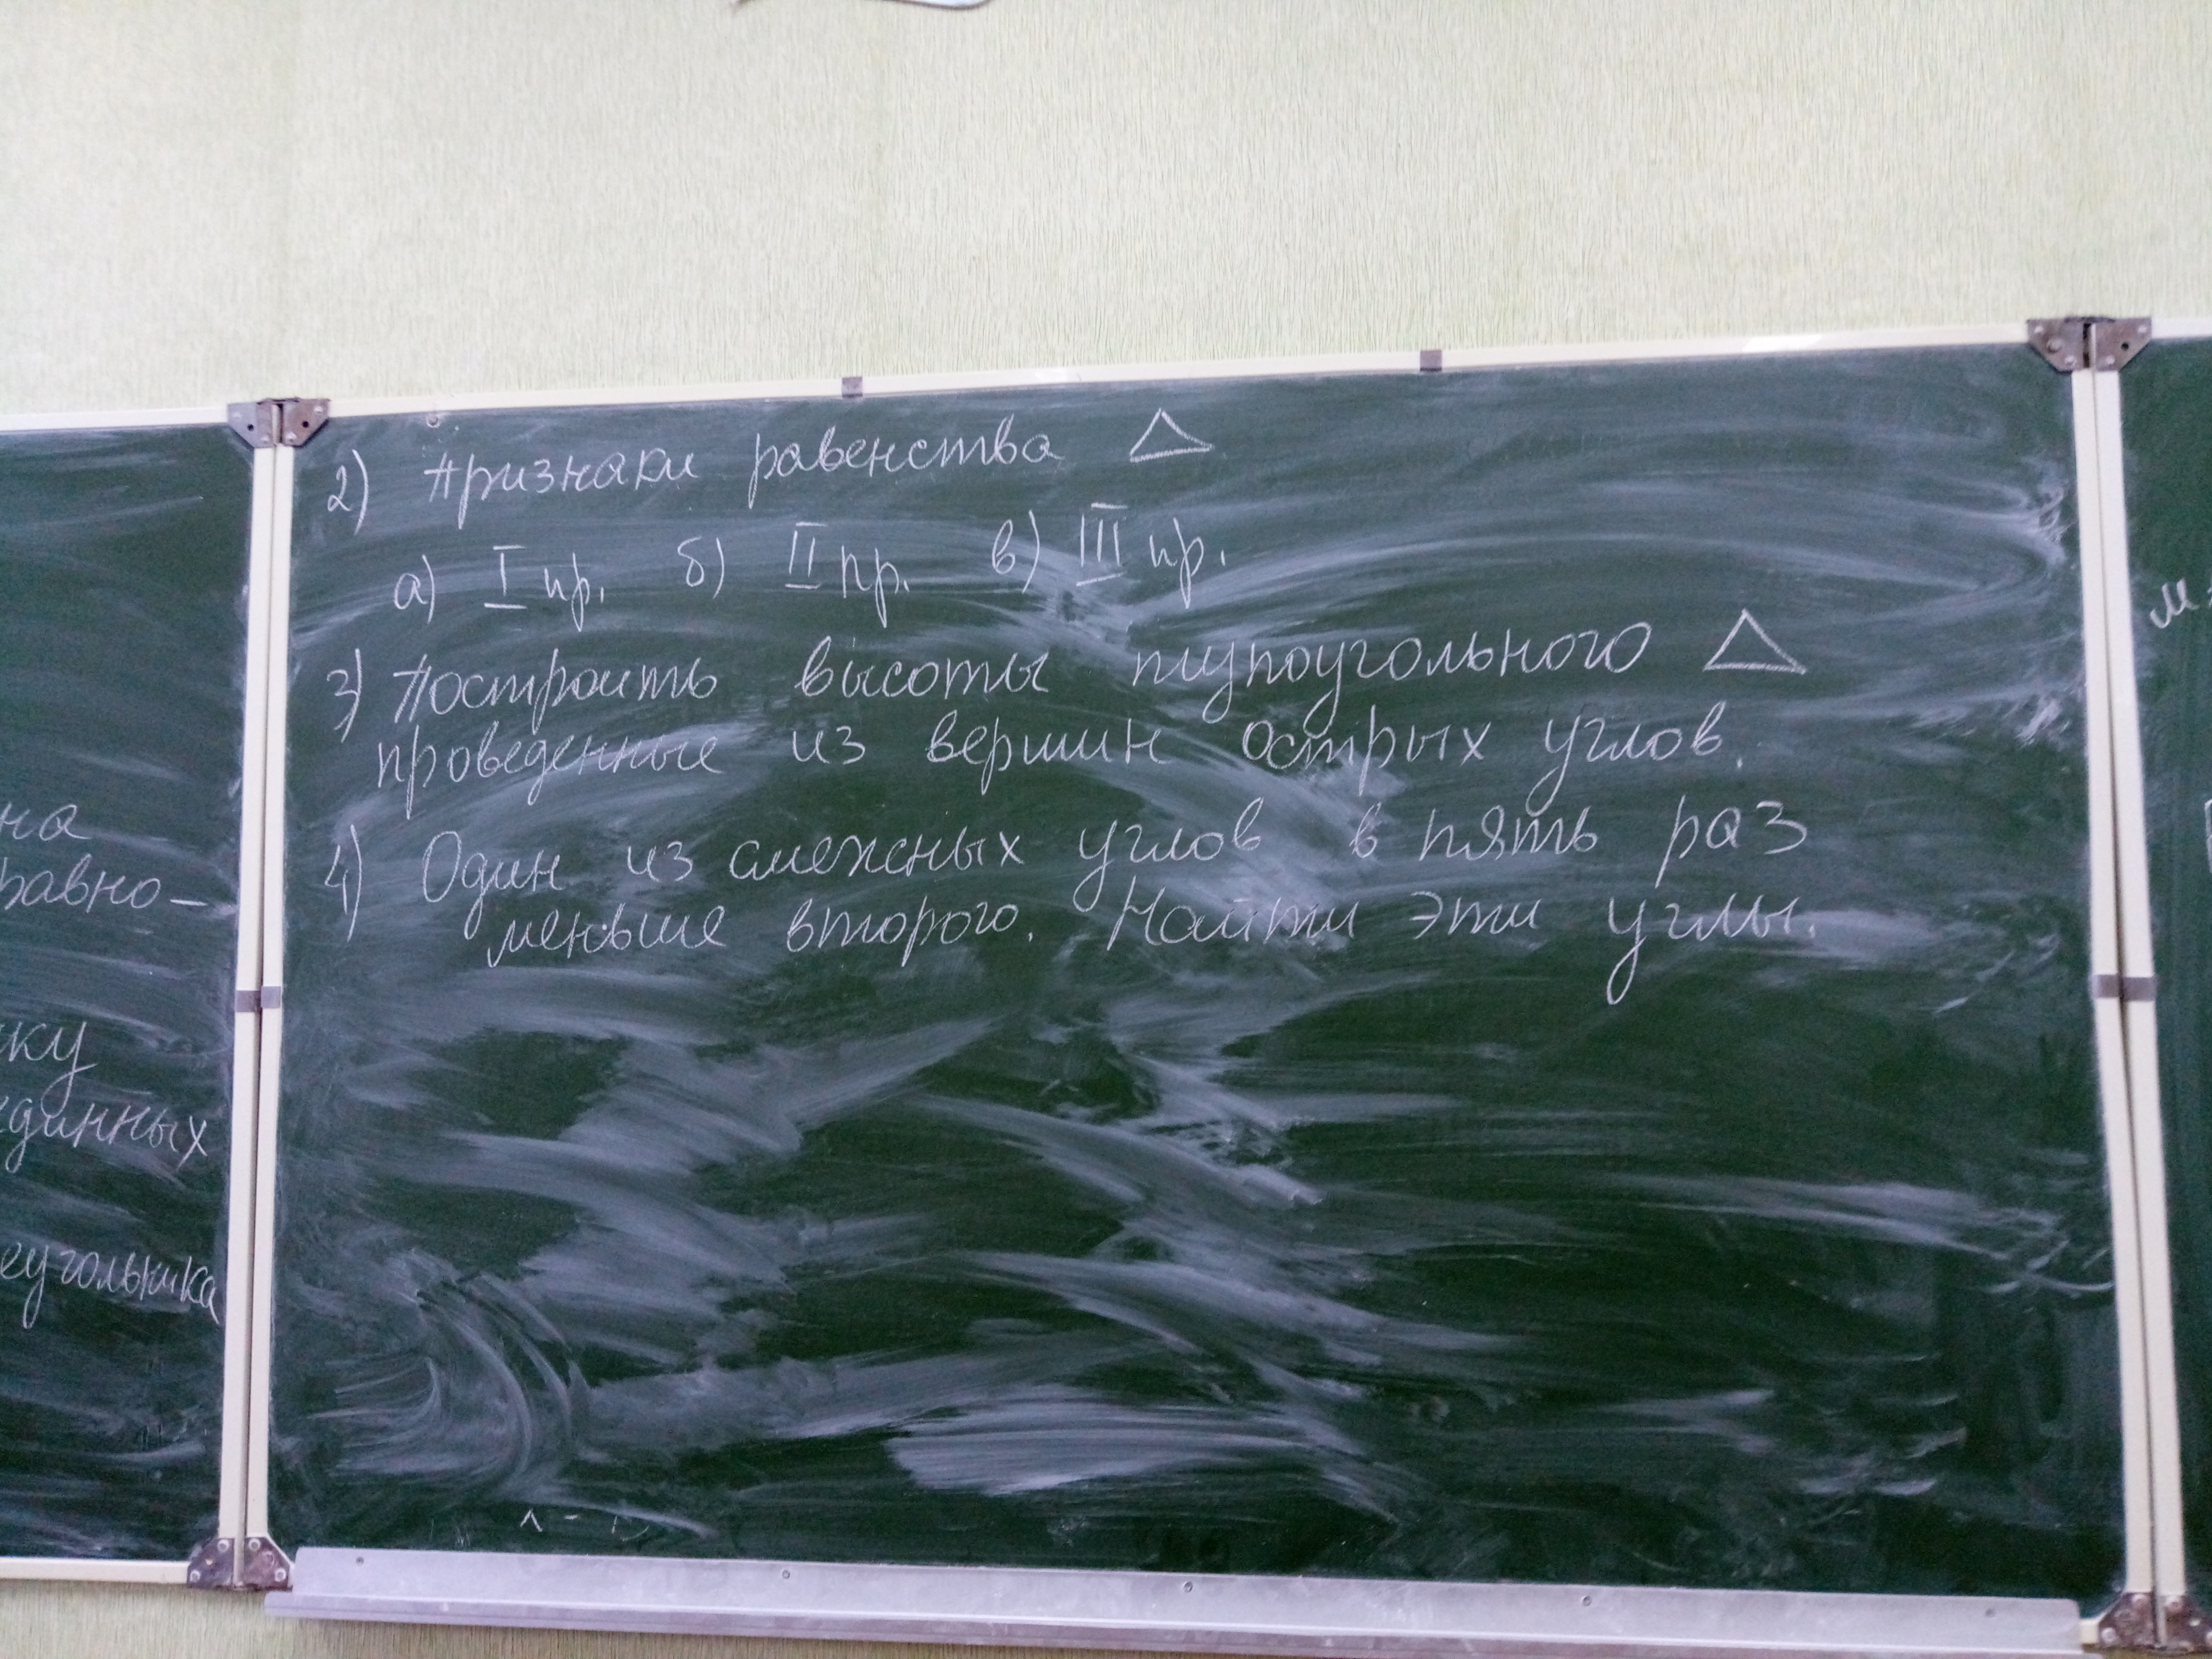 2) Признаки равенства △
а) I пр. б) II пр. в) III пр.
3) Построить высоты тупоугольного △
проведенные из вершин острых углов.
4) Один из смежных углов в пять раз
меньше второго. Найти эти углы.
на
равно-
ку
единных
еугольника
м